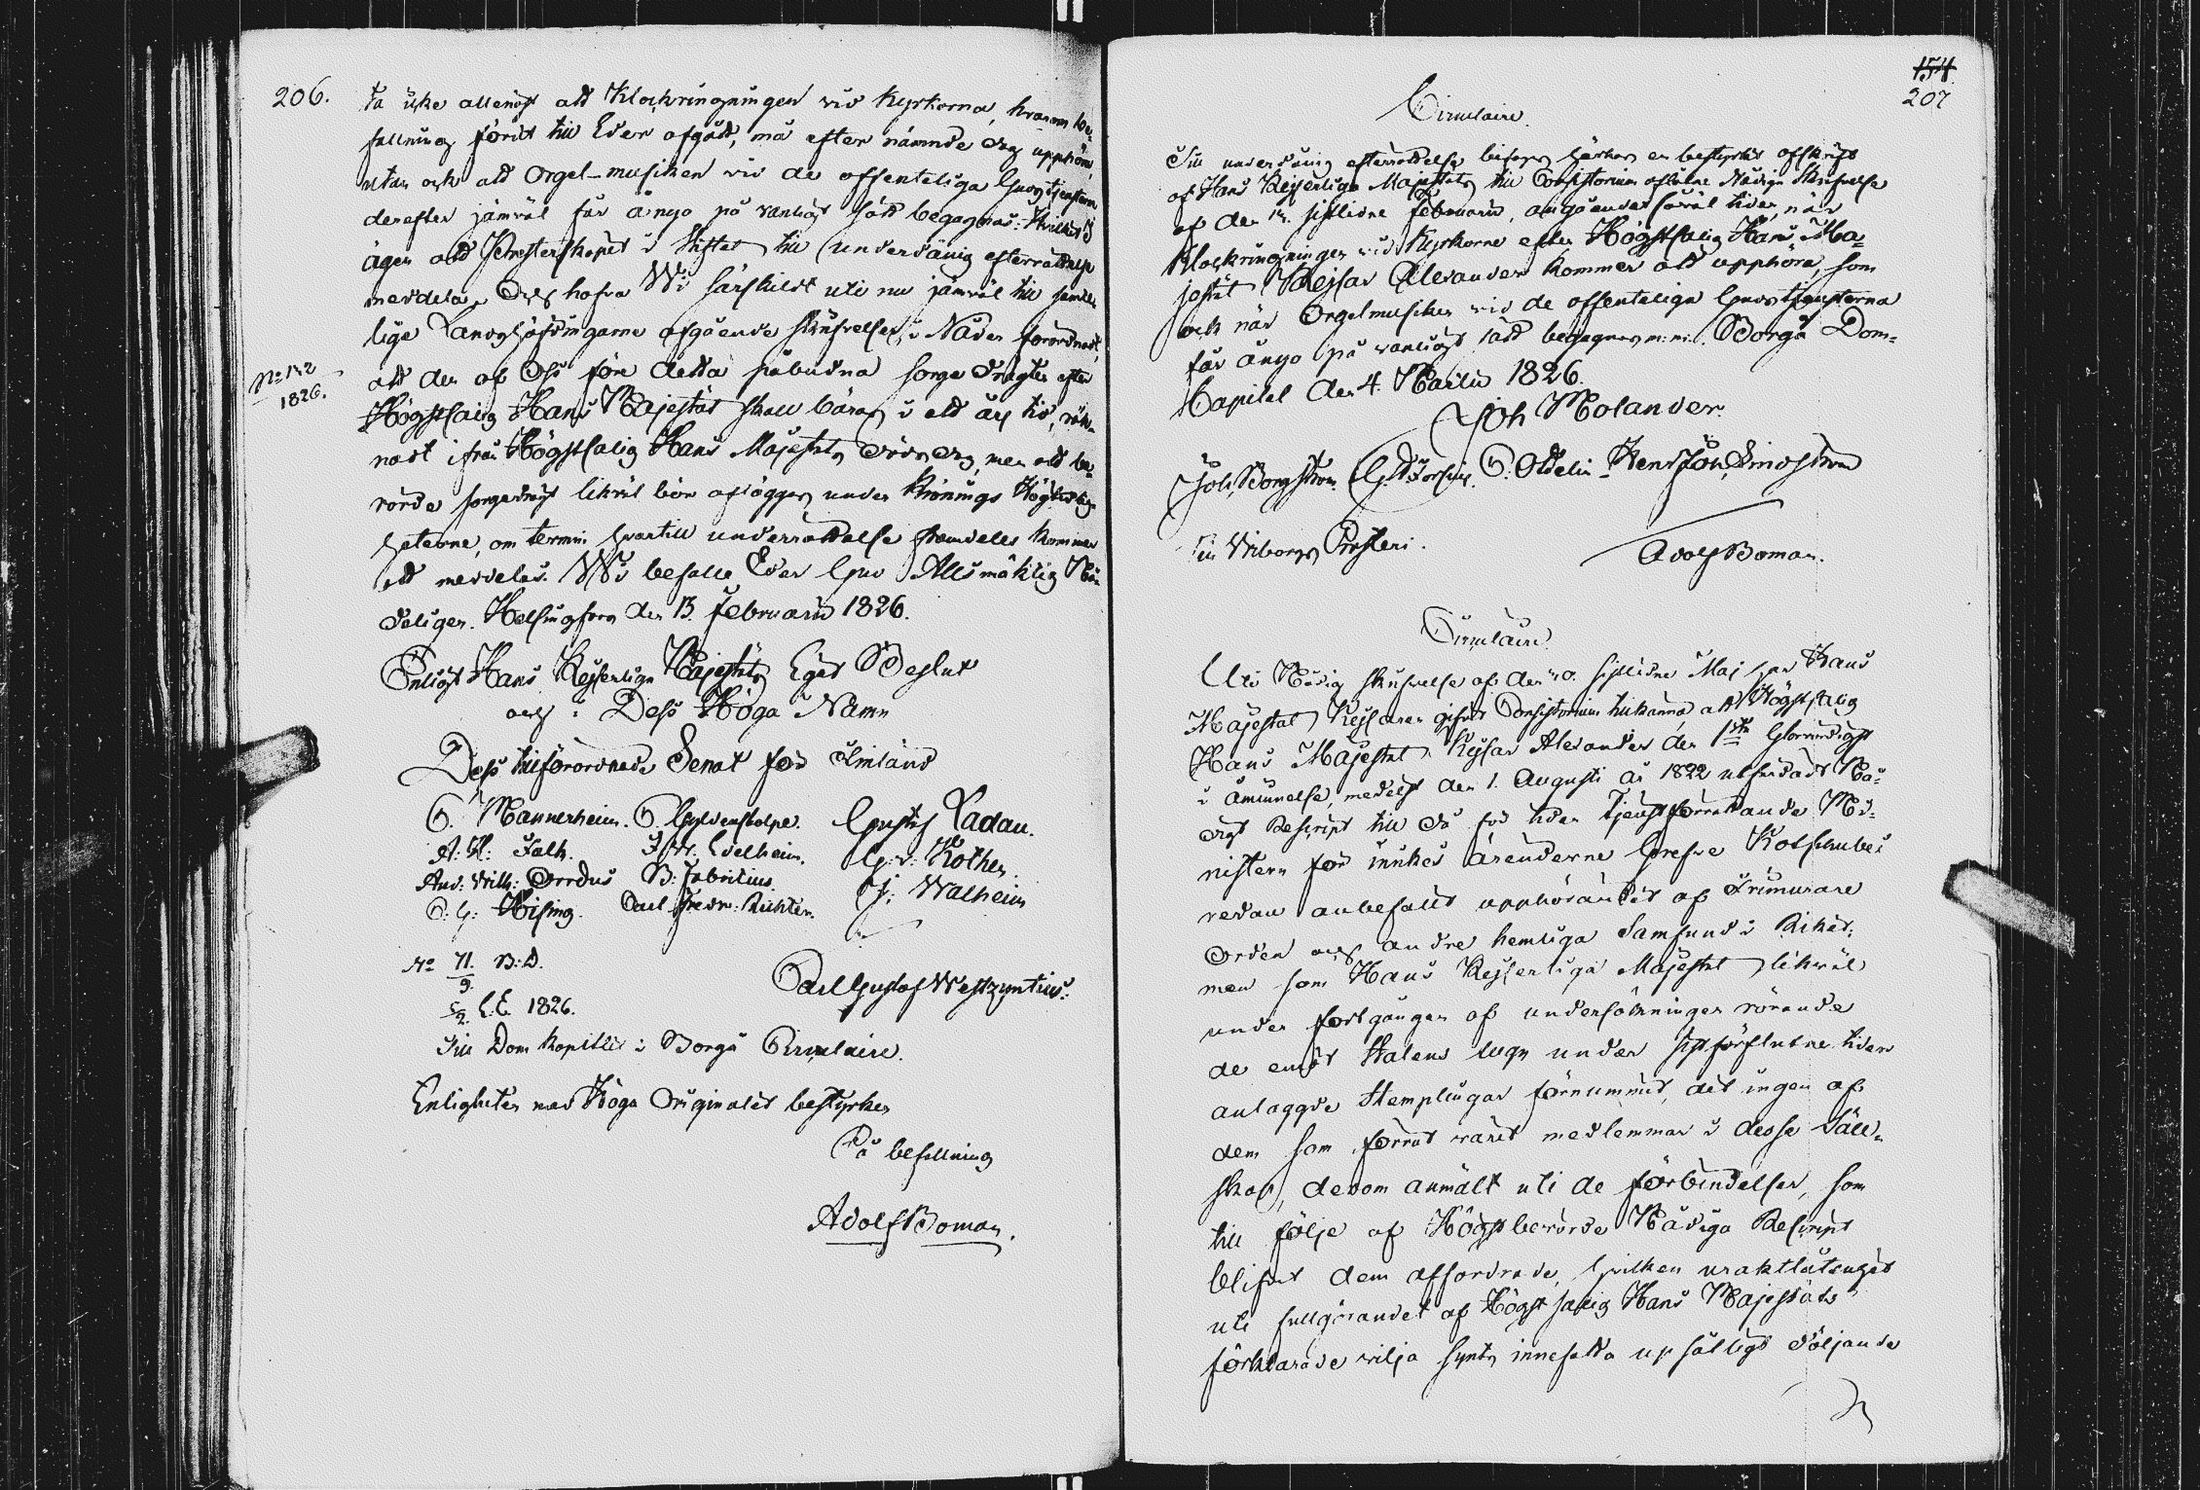 206.
ta icke allenast att Klockringningen vid Kyrkorna, hvarom be-
fallning förut till Eder afgått, må efter nämnde dag upphöra,
utan ock att Orgel-musiken vid de offenteliga Gudstjensterna
derefter jämväl får ånyo på vanligt sätt begagnas: Hvilket I
ägen att Presterskapet i Stiftet till underdånig efterrättelse
meddela. Och hafva Wi särskildt uti nu jämväl till samte-
lige Landshöfdingarne afgående skrifvelser, i Nåder förordnat,
No 142
1826.
att den af Oss före detta påbudna sorge drägten efter
Högstsalig Hans Majestät skall bäras i ett års tid, räk-
nadt ifrån Högstsalig Hans Majestäts dödsdag, men att be-
rörde sorgedrägt likväl bör afläggas under Krönings Högtidlig-
heterne, om termin hvartill underrättelse framdeles kommer
att meddelas. Wi befalle Eder Gud Allsmäktig Nå-
deligen. Helsingfors den 13. Februarii 1826.
Enligt Hans Kejserliga Majestäts Eget Beslut
och i Dess Höga Namn
Dess tillförordnade Senat för Finland
C. Mannerheim. G. Gyldenstolpe. Gustaf Ladau.
A: H: Falk. Edelheim. G: v: Kothen.
And: Wilh: Orræus B: Fabritius. C. J: Walheim
O: G: Hising. Carl Fredr: Richter.
No 71. B:D.
9.
5/2. E.E. 1826.
Carl Gustaf Westzynthius.
Till Dom Kapitlet i Borgå Circulaire.
Enligheten med Höga Originalet bestyrker
På befallning
Adolf Boman.
154
207
Circulaire.
Till underdånig efterrättelse bifogas härhos en bestyrkt afskrift
af Hans Kejserliga Majestäts till Consistorium aflåtne Nådiga skrifvelse
af den 13. sistlidne Februarii, angående såväl tiden, när
Klockringningen vid Kyrkorne efter Högstsalig Hans Ma-
jestät Kejsar Alexander kommer att upphöra, som
ock när Orgelmusiken vid de offenteliga Gudstjensterna
får ånyo på vanligt sätt begagnas m: m: Borgå Dom-
Capitel den 4 Martii 1826.
Joh Molander.
Joh, Borgström. O: Odelin. Henr Joh, Lindström
Till Wiborgs Prosteri.
Adolf Boman.
Circulaire.
Uti Nådig skrifvelse af den 10. sistlidne Maj har Hans
Majestät Kejsaren gifvit Consistorium tillkänna att Högstsalig
Hans Majestät Kejsar Alexander den 1ste Glorvördigst
i åminnelse, medelst den 1. Augusti år 1822 utfärdadt Nå-
digt Rescript till då för tiden tjenstförrättande Mi-
nistern för inrikes ärenderne Grefve Kotschubei
redan anbefallt upphörandet af Frimurare
Orden och andre hemliga Samfund i Riket;
men som Hans Kejserliga Majestät likväl
under fortgången af undersökningen rörande
de emot Statens lugn under sistförflutne tiden
anlaggde Stemplingar förnummit, det ingen af
dem som förrut varit medlemmar i desse Säll-
skap, derom anmält uti de förbindelser, som
till följe af Högstberörde Nådiga Rescript
blifvit dem affordrade, hvilken uraktlåtenhet
uti fullgörandet af Högstsalig Hans Majestäts
förklarade vilja synts innefatta upsåtligt döljande